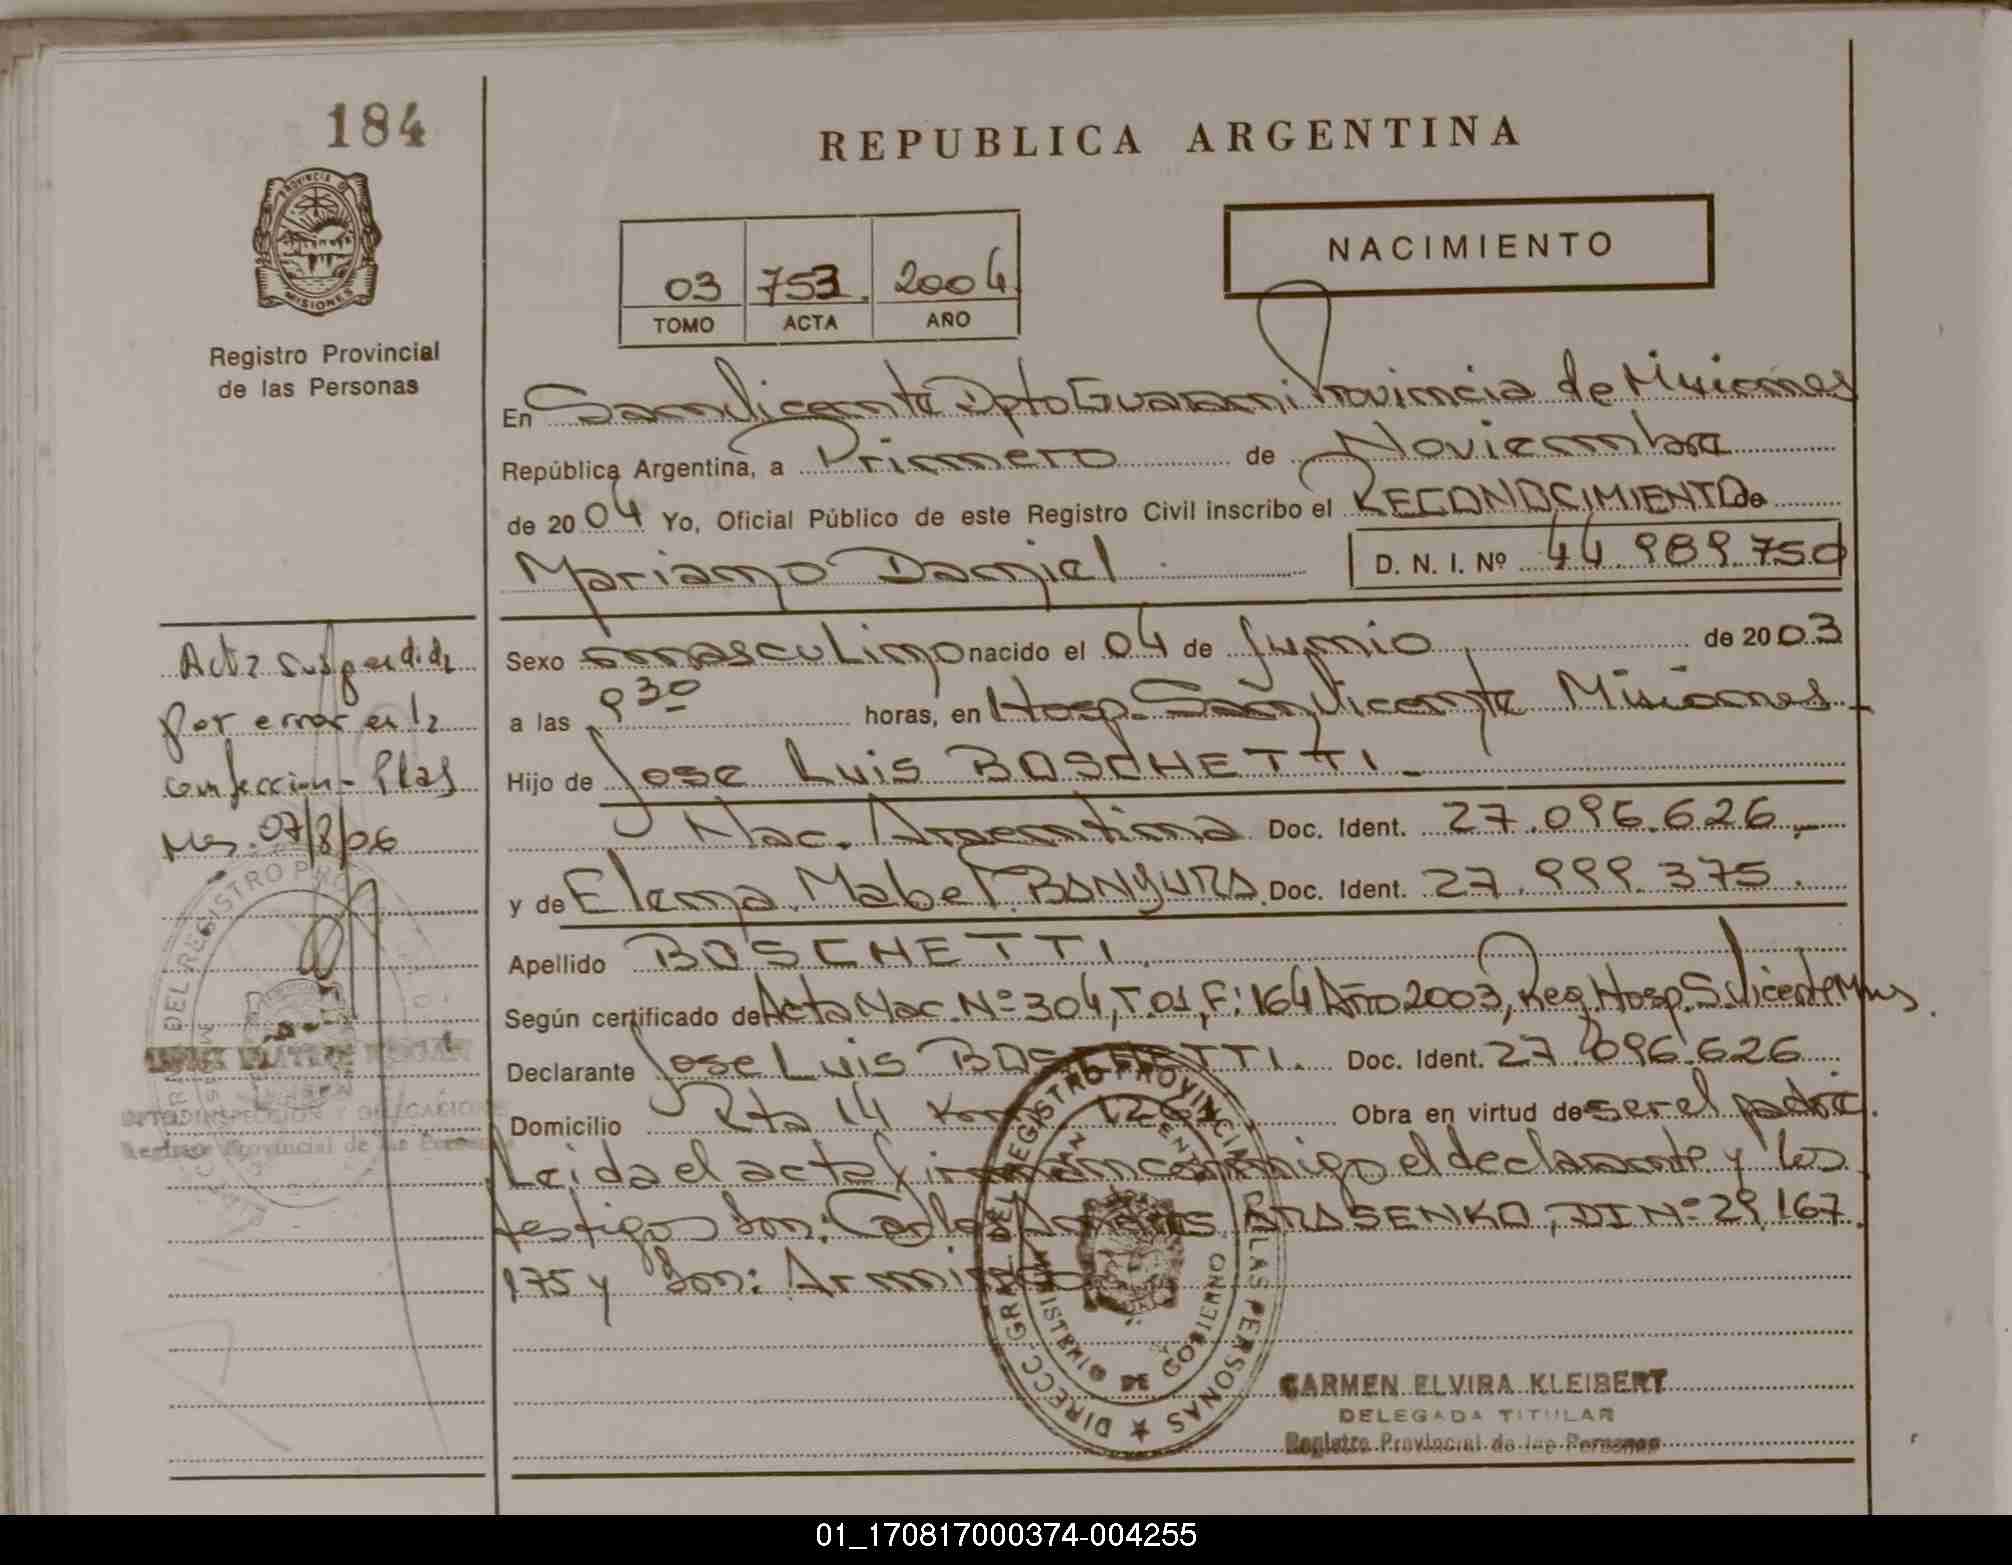 184
REPUBLICA ARGENTINA
PROVINCIA DE
MISIONES
Registro Provincial
de las Personas
NACIMIENTO
03 753 2004
TOMO ACTA AÑO
En San Vicente Dpto Guarani Provincia de Misiones
República Argentina, a Primero de Noviembre
de 2004 Yo, Oficial Público de este Registro Civil inscribo el RECONOCIMIENTO de
Mariano Daniel D. N. I. Nº 44.989.750
Sexo masculino nacido el 04 de Junio de 2003
a las 9 30 horas, en Hosp. San Vicente Misiones
Hijo de Jose Luis BOSCHETTI.
Nac. Argentina Doc. Ident. 27.096.626
y de Elena Mabel Doc. Ident. 27.999.375
Apellido BOSCHETTI
Según certificado de Acta Nac. Nº 304, T. 01, F: 164 Año 2003, Reg. Hosp. S. Vicente Mns.
Declarante Jose Luis BOSCHETTI. Doc. Ident. 27.096.626
Domicilio Rta 14 Km Obra en virtud de ser el padre.
Leida el acta firman conmigo el declarante y los
testigos Don: Carlos BRASENKO, DI Nº 29.167.
175 y Don: Armindo
Acta suspendida
por error en la
confeccion - Plas
Mns. 07/8/06
DIRECC. GRAL. DEL REGISTRO PROVINCIAL DE LAS PERSONAS
MINISTERIO DE GOBIERNO
CARMEN ELVIRA KLEIBERT
DELEGADA TITULAR
Registro Provincial de las Personas
DEL REGISTRO PRO
Registro Provincial de las Personas
01_170817000374-004255